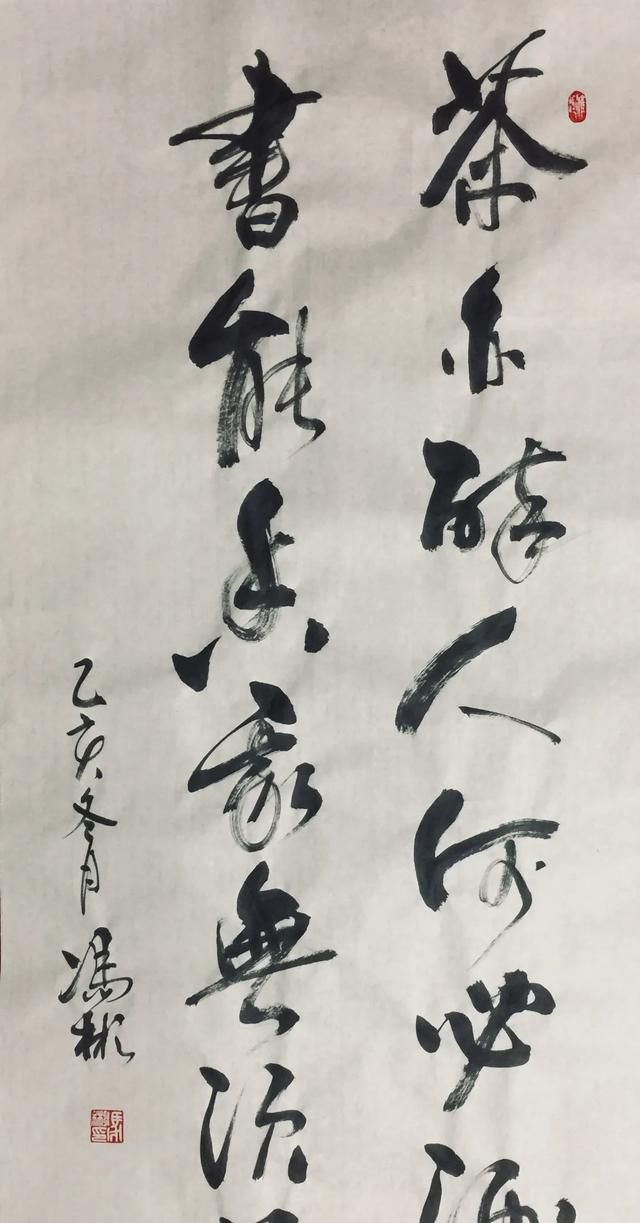 茶亦醉人何必酒
書能香我無須
乙亥冬月
馮彬